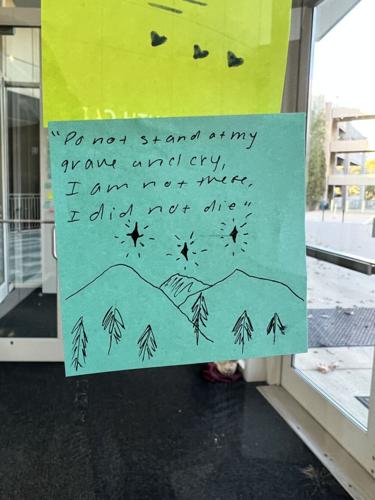 "Do not stand at my
grave and cry,
I am not there,
I did not die"